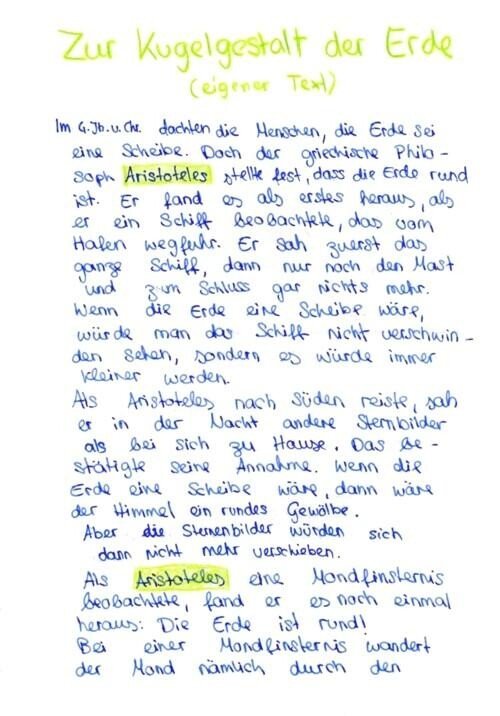 Zur Kugelgestalt der Erde
(eigener Text)
Im 4. Jh. v. Chr. dachten die Menschen, die Erde sei
eine Scheibe. Doch der griechische Philo-
soph Aristoteles stellte fest, dass die Erde rund
ist. Er fand es als erstes heraus, als
er ein Schiff beobachtete, das vom
Hafen wegfuhr. Er sah zuerst das
ganze Schiff, dann nur noch den Mast
und zum Schluss gar nichts mehr.
Wenn die Erde eine Scheibe wäre,
würde man das Schiff nicht verschwin-
den sehen, sondern es würde immer
kleiner werden.
Als Aristoteles nach Süden reiste, sah
er in der Nacht andere Sternbilder
als bei sich zu Hause. Das be-
stätigte seine Annahme. Wenn die
Erde eine Scheibe wäre, dann wäre
der Himmel ein rundes Gewölbe.
Aber die Sternenbilder würden sich
dann nicht mehr verschieben.
Als Aristoteles eine Mondfinsternis
beobachtete, fand er es noch einmal
heraus: Die Erde ist rund!
Bei einer Mondfinsternis wandert
der Mond nämlich durch den